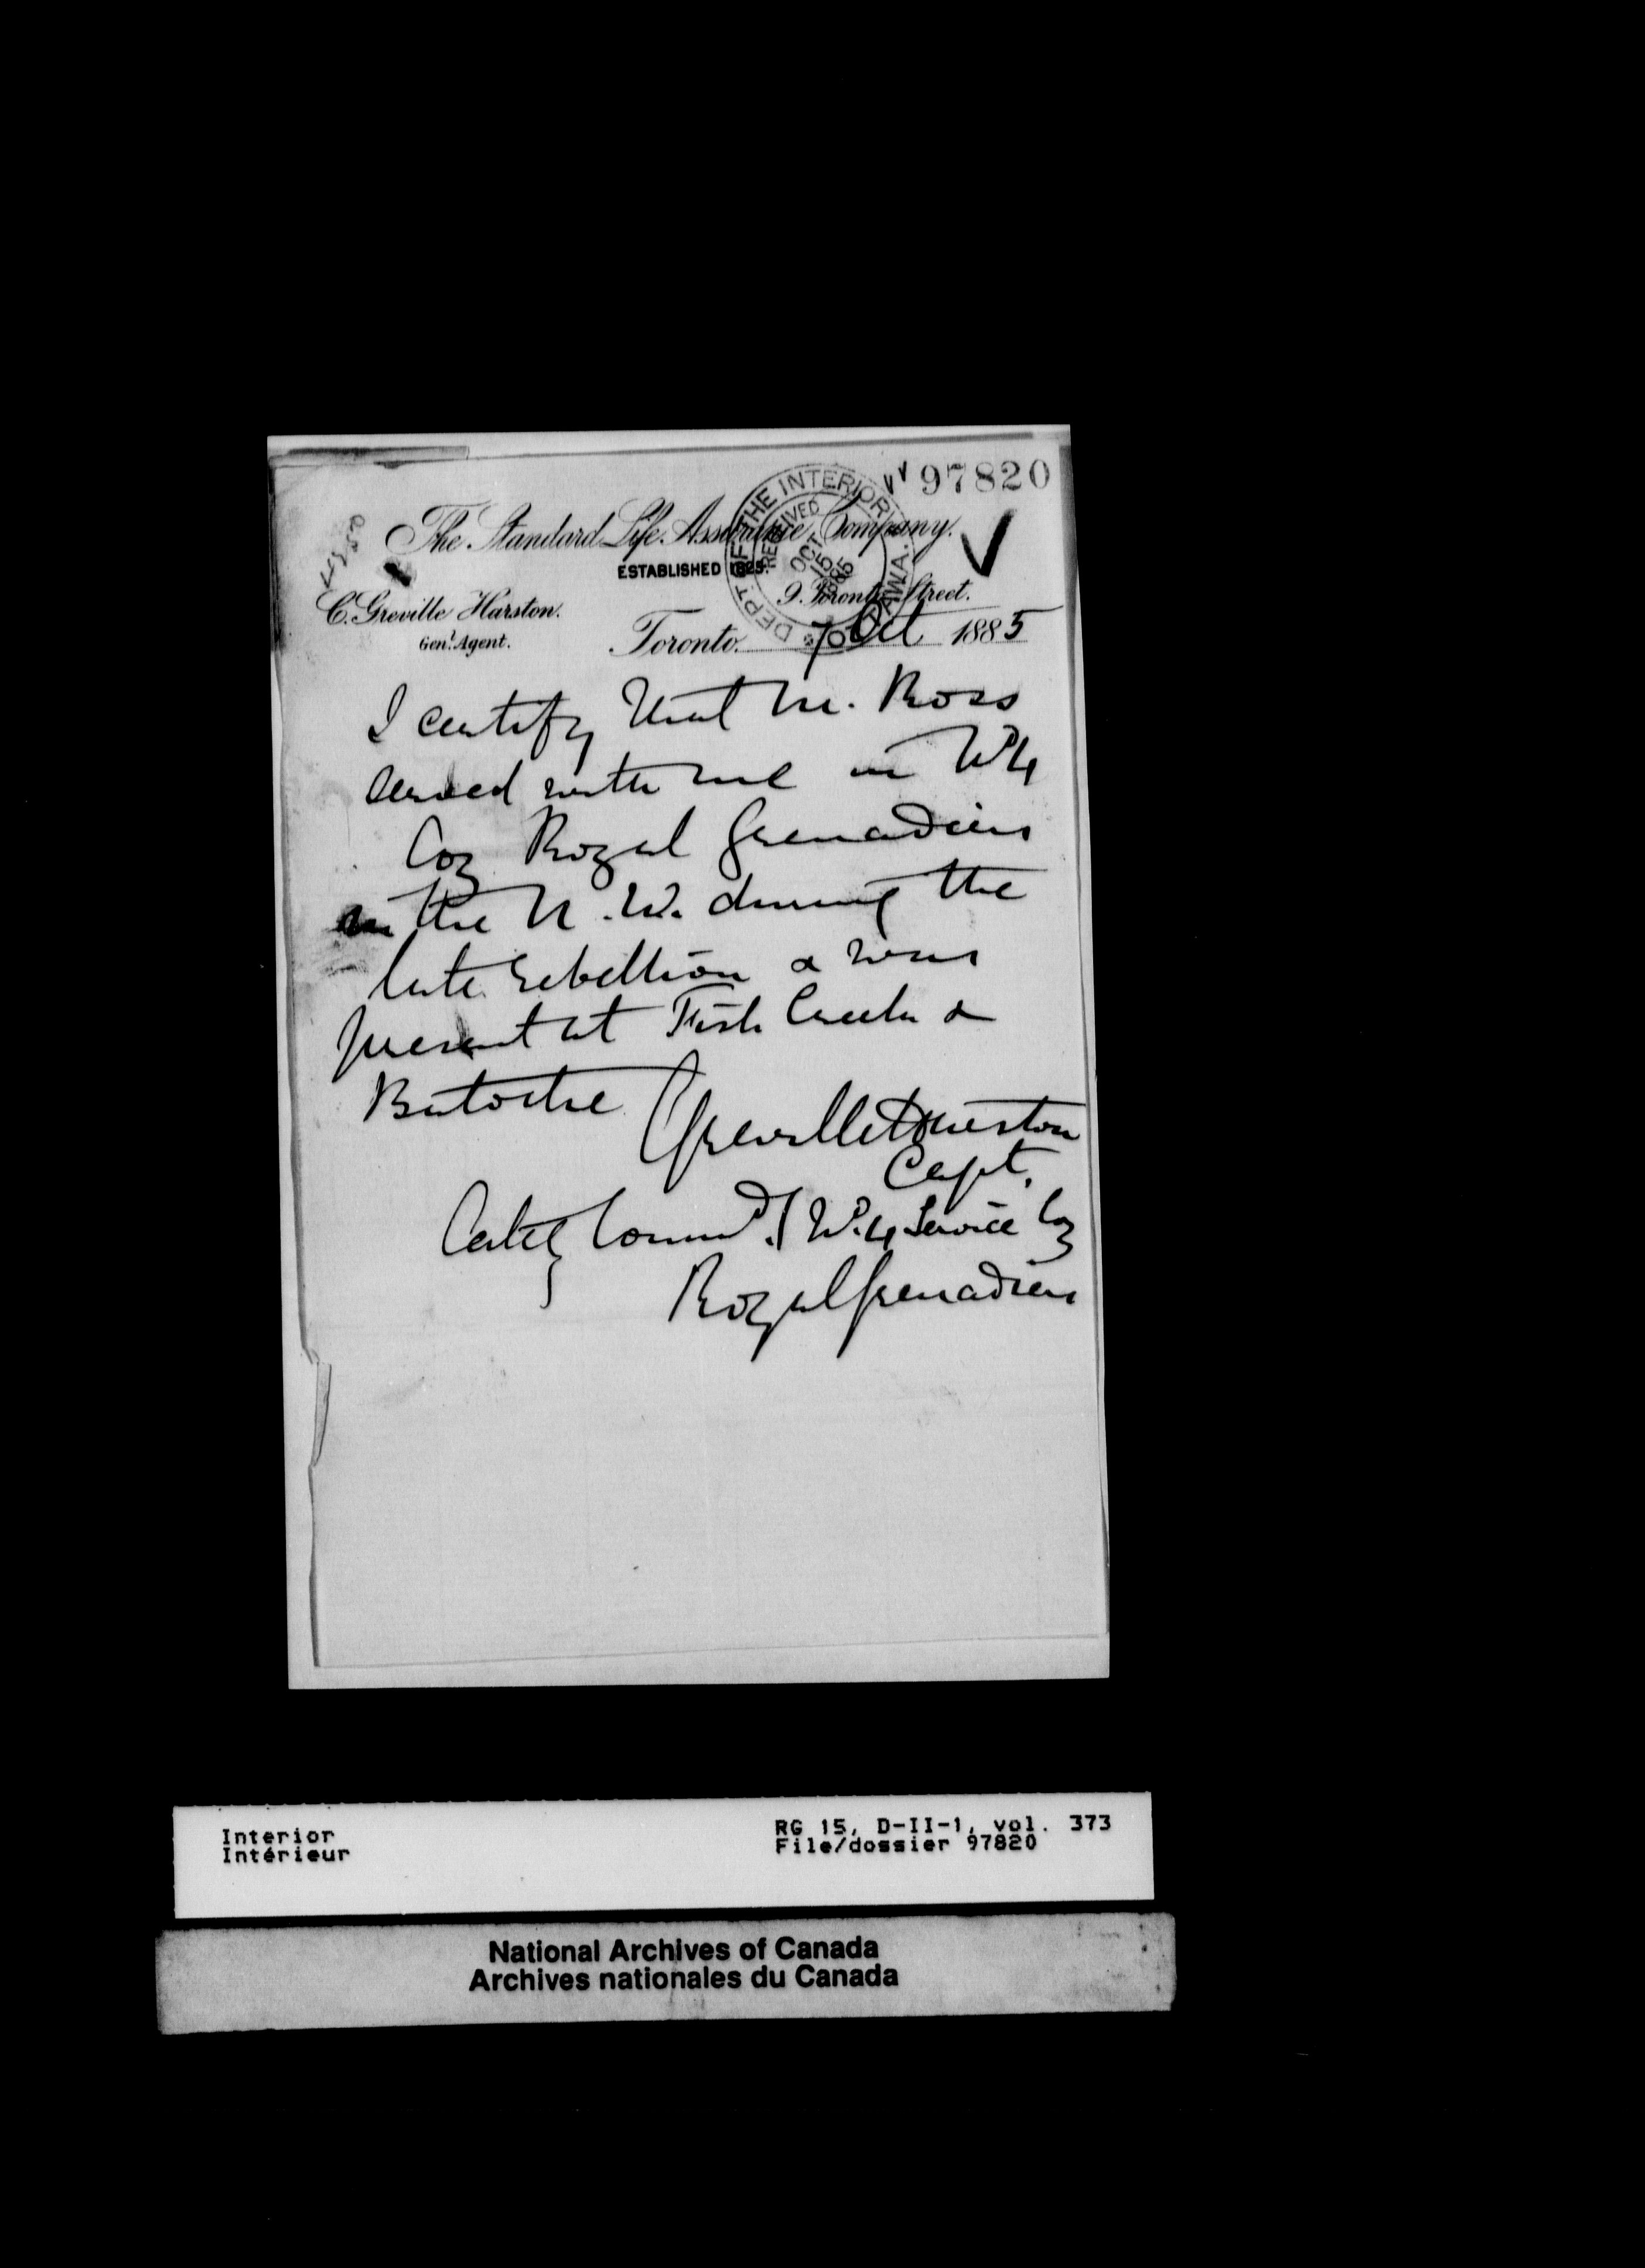 97820
DEPT. OF THE INTERIOR OTTAWA.
RECEIVED
OCT
15
1885
The Standard Life Assurance Company.
ESTABLISHED 1825.
9. Toronto Street.
C. Greville Harston.
Genl. Agent.
Toronto. 7 Oct 1885
I certify that M. Ross
served with me in No 4
Coy Royal Grenadiers
in the N.W. during the
late rebellion & was
present at Fish Creek &
Batoche
C Greville Harston
Capt.
Comm'd. No. 4 Service Coy
Royal Grenadiers
Interior
Intérieur
RG 15, D-II-1, vol. 373
File/dossier 97820
National Archives of Canada
Archives nationales du Canada